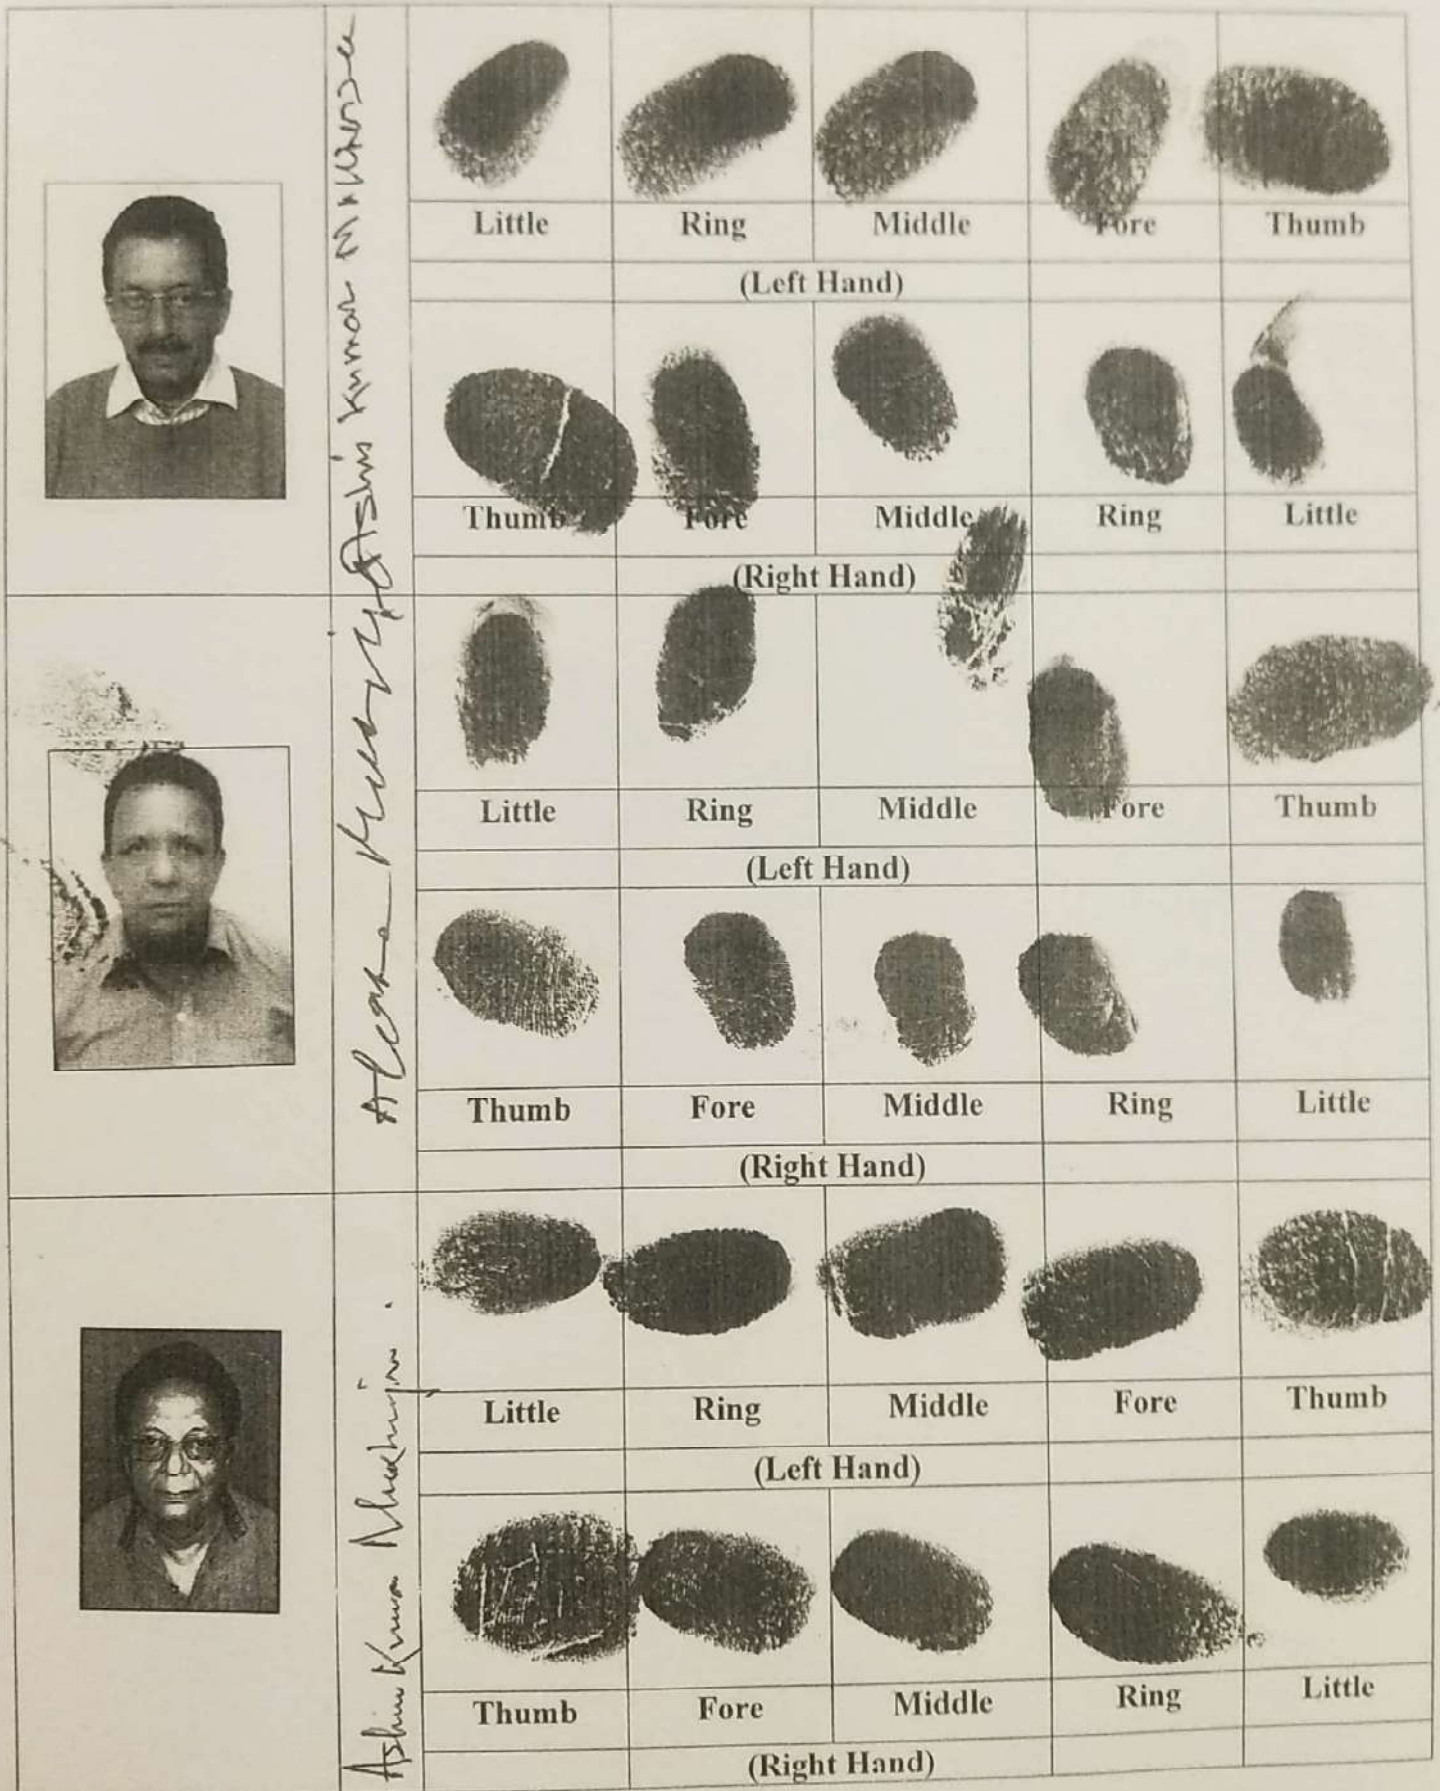 Ashis Kumar Mukherjee
Little Ring Middle Fore Thumb
(Left Hand)
Thumb Fore Middle Ring Little
(Right Hand)
Little Ring Middle Fore Thumb
(Left Hand)
Thumb Fore Middle Ring Little
(Right Hand)
Ashim Kumar Mukherjee.
Little Ring Middle Fore Thumb
(Left Hand)
Thumb Fore Middle Ring Little
(Right Hand)